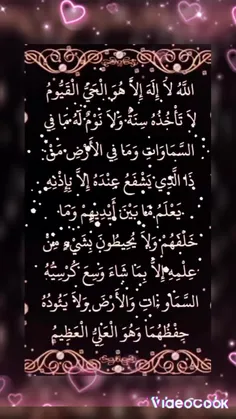 اللّهُ لاَ إِلَهَ إِلاَّ هُوَ الْحَيُّ الْقَيُّومُ
لاَ تَأْخُذُهُ سِنَةٌ وَلاَ نَوْمٌ لَهُ مَا فِي
السَّمَاوَاتِ وَمَا فِي الأَرْضِ مَنْ
ذَا الَّذِي يَشْفَعُ عِنْدَهُ إِلاَّ بِإِذْنِهِ
يَعْلَمُ مَا بَيْنَ أَيْدِيهِمْ وَمَا
خَلْفَهُمْ وَلاَ يُحِيطُونَ بِشَيْءٍ مِنْ
عِلْمِهِ إِلاَّ بِمَا شَاءَ وَسِعَ كُرْسِيُّهُ
السَّمَاوَاتِ وَالأَرْضَ وَلاَ يَئُودُهُ
حِفْظُهُمَا وَهُوَ الْعَلِيُّ الْعَظِيمُ
VIDEOCOOK